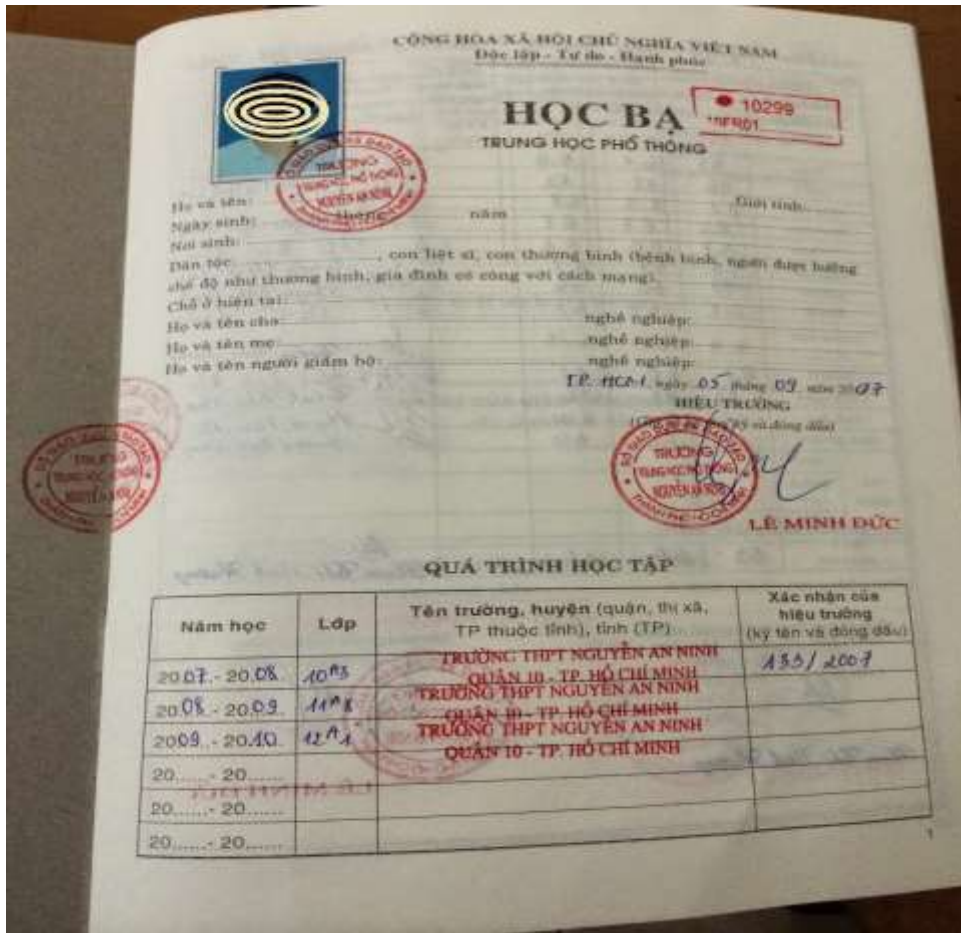 CỘNG HÒA XÃ HỘI CHỦ NGHĨA VIỆT NAM
Độc lập - Tự do - Hạnh phúc
HỌC BẠ
10299
TRUNG HỌC PHỔ THÔNG
Họ và tên: Giới tính:
Ngày sinh: tháng năm
Nơi sinh:
Dân tộc: , con liệt sĩ, con thương binh (bệnh binh, người được hưởng
chế độ như thương binh, gia đình có công với cách mạng).
Chỗ ở hiện tại:
Họ và tên cha: nghề nghiệp:
Họ và tên mẹ: nghề nghiệp:
Họ và tên người giám hộ: nghề nghiệp:
TP. HCM, ngày 05 tháng 09 năm 2007
HIỆU TRƯỞNG
TRƯỜNG
TRUNG HỌC PHỔ THÔNG
NGUYỄN AN NINH
LÊ MINH ĐỨC
QUÁ TRÌNH HỌC TẬP
Năm học Lớp Tên trường, huyện (quận, thị xã, TP thuộc tỉnh), tỉnh (TP) Xác nhận của hiệu trưởng (ký tên và đóng dấu)
2007 - 2008 10A3 TRƯỜNG THPT NGUYỄN AN NINH 133/2007
QUẬN 10 - TP. HỒ CHÍ MINH
2008 - 2009 11A8 TRƯỜNG THPT NGUYỄN AN NINH
QUẬN 10 - TP. HỒ CHÍ MINH
2009 - 2010 12A1 TRƯỜNG THPT NGUYỄN AN NINH
QUẬN 10 - TP. HỒ CHÍ MINH
20......- 20......
20......- 20......
20......- 20......
1